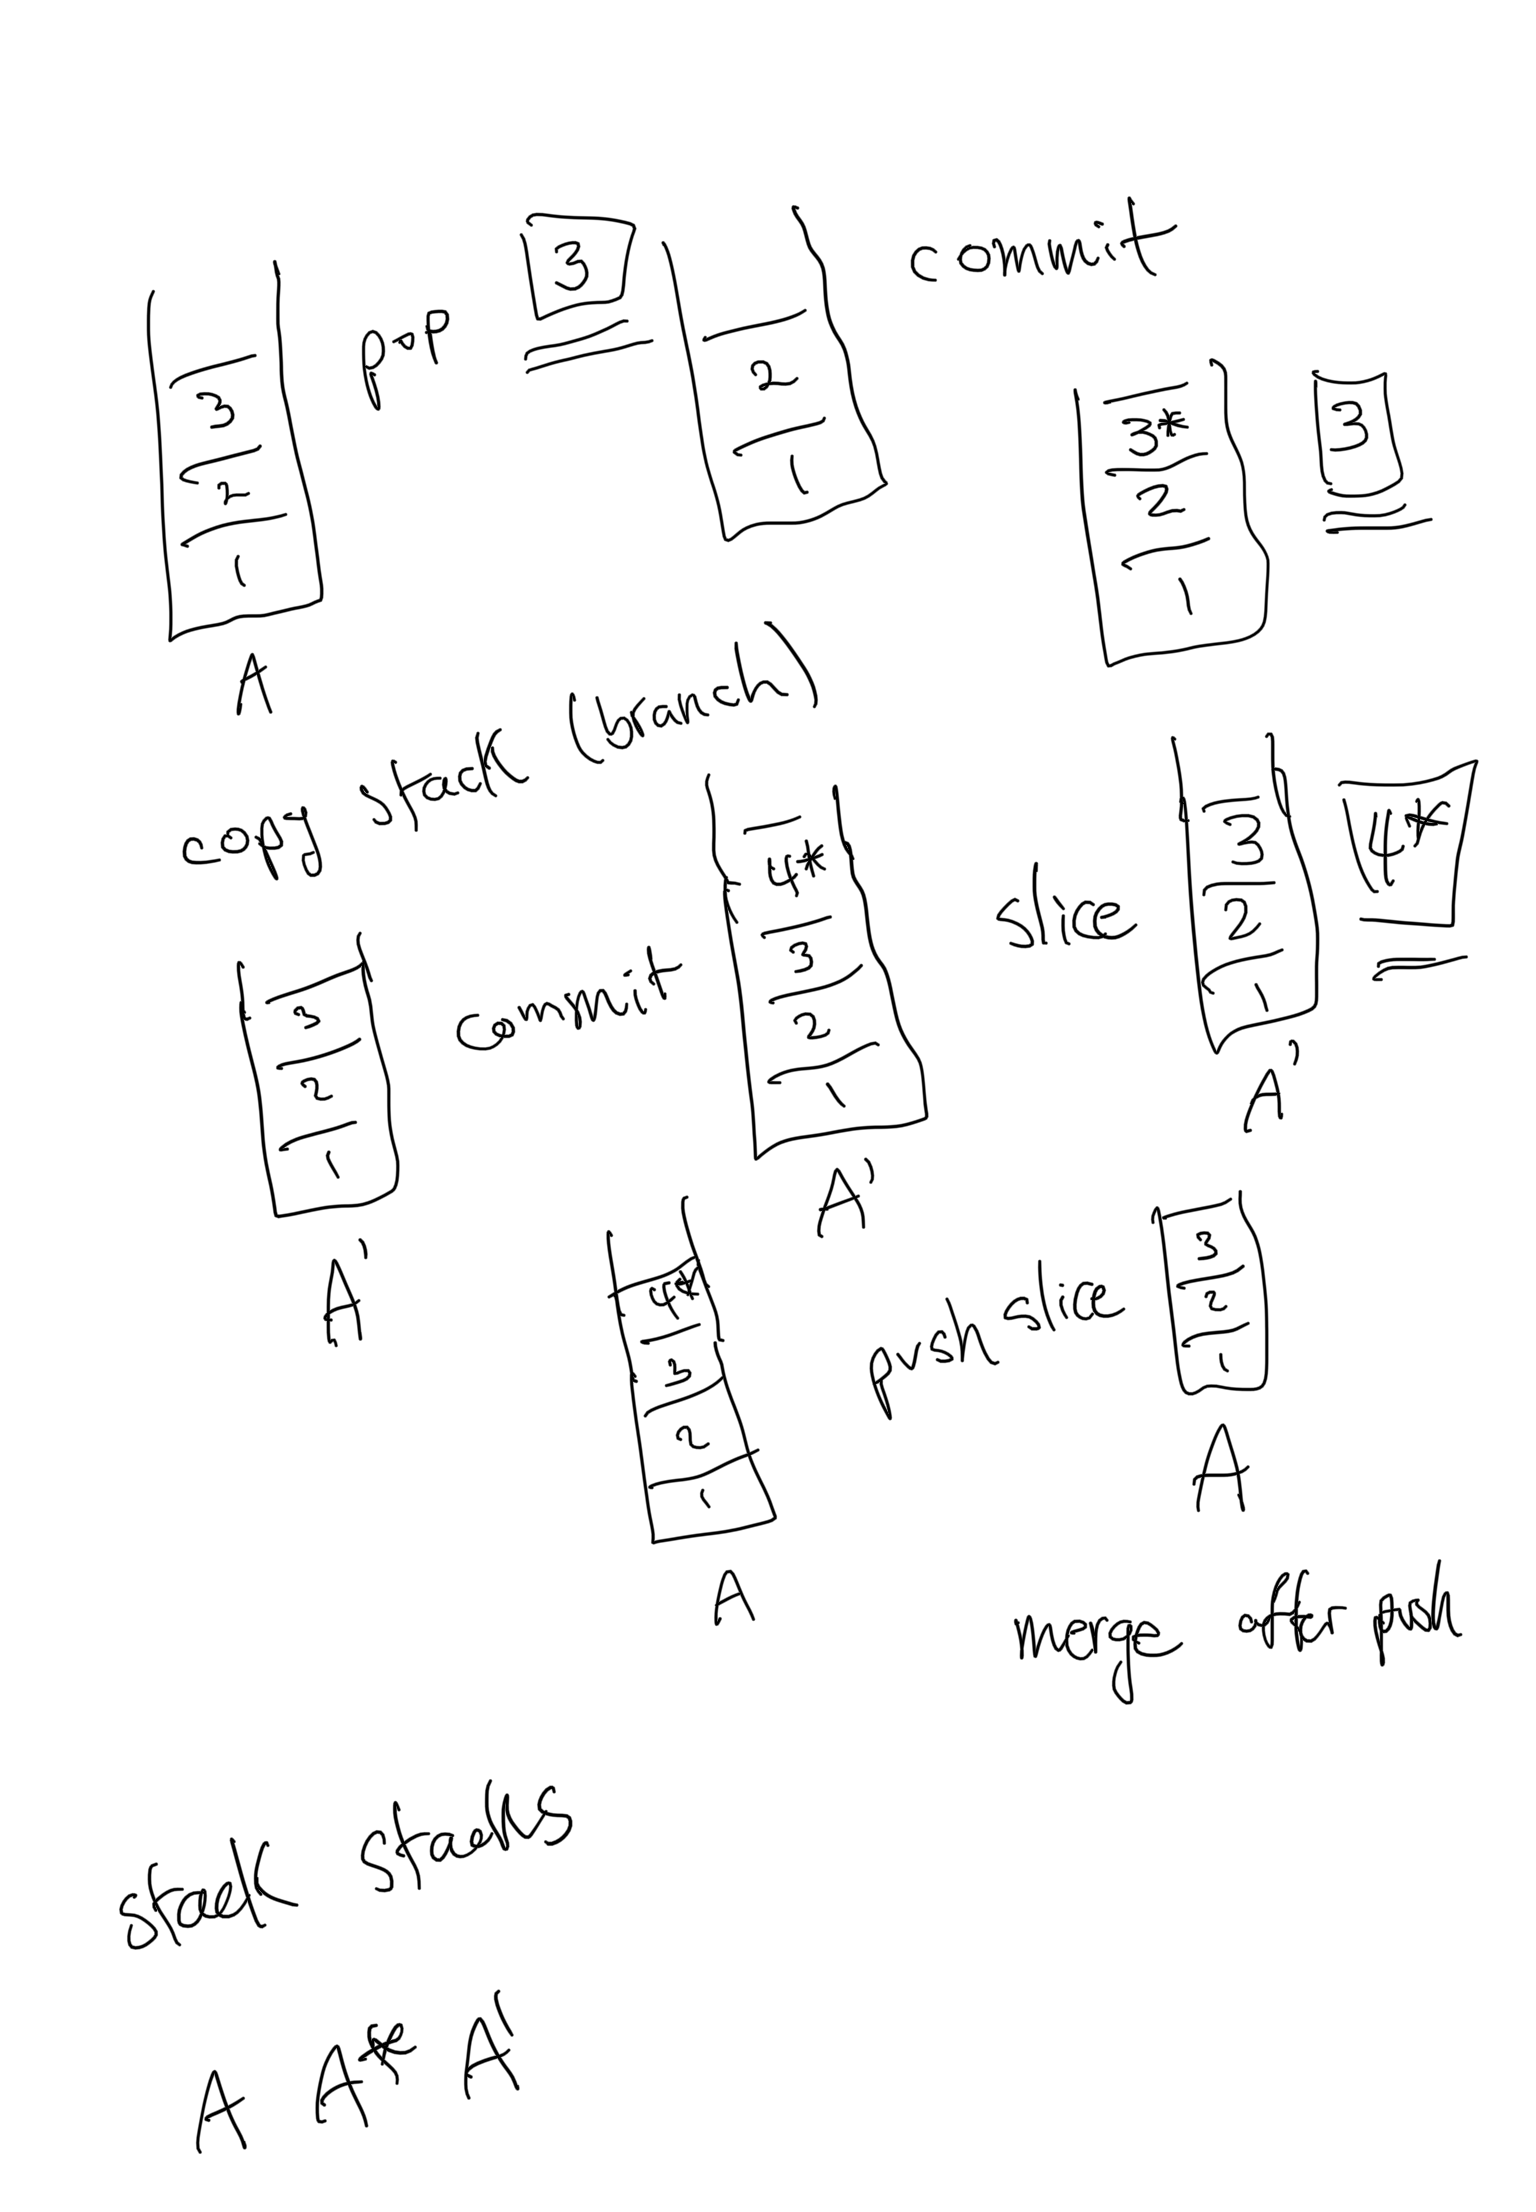 pop
3
commit
3
2
1
A
2
1
3*
2
1
3
copy stack (branch)
3
2
1
A'
commit
4*
3
2
1
A'
slice
3
2
1
A'
4*
4*
3
2
1
A
push slice
3
2
1
A
merge after push
stack stacks
A A* A'